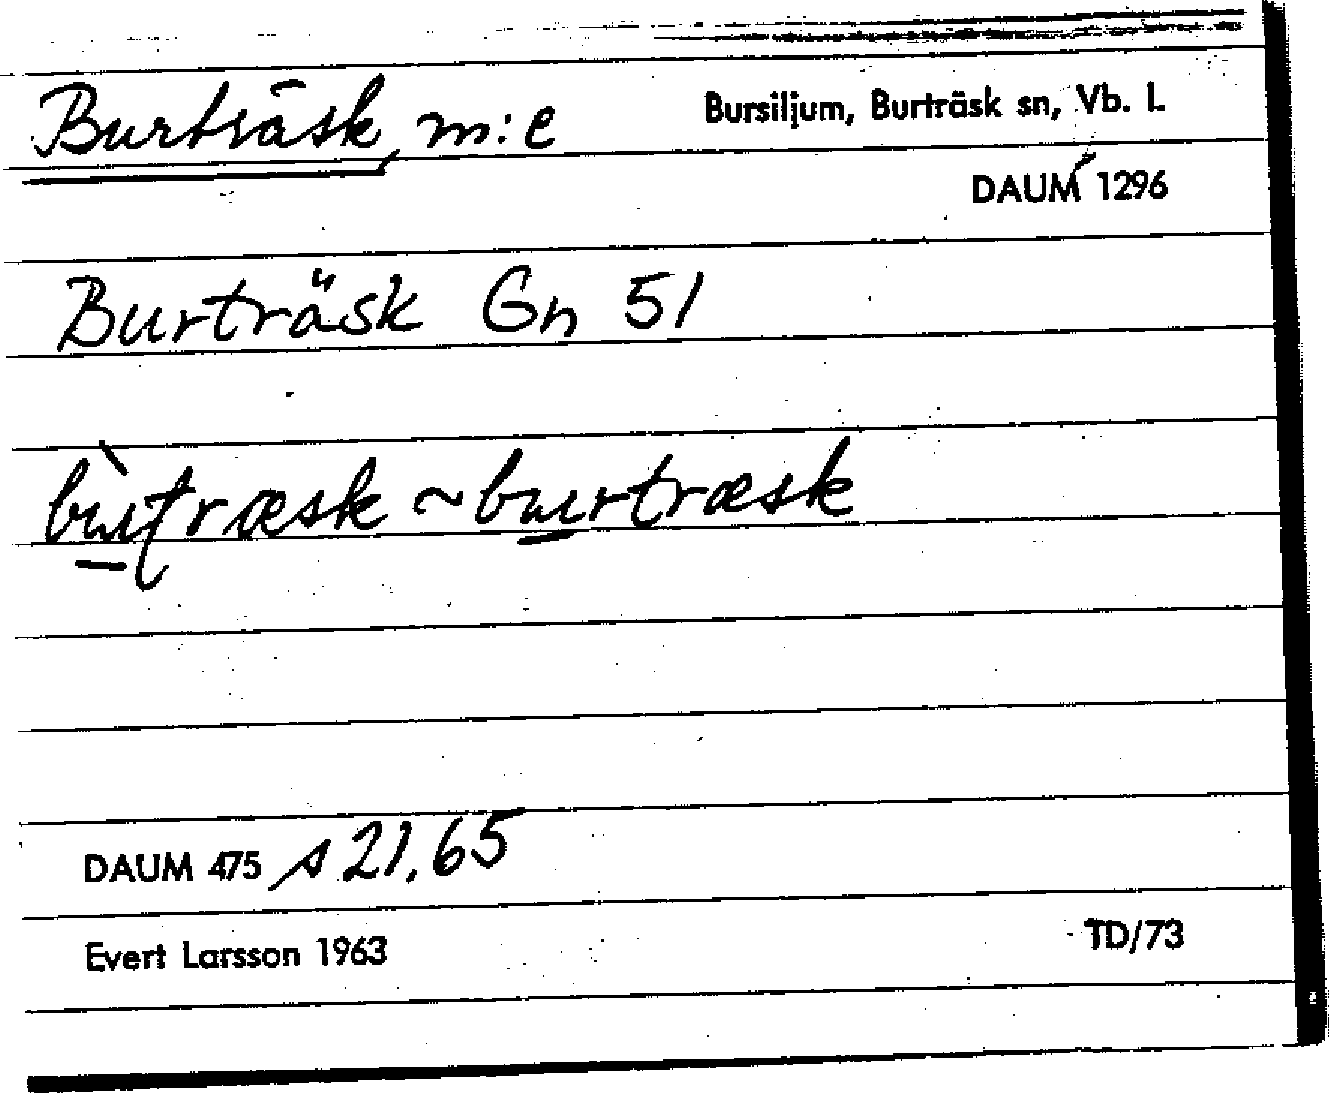 Burträsk, m:e
Bursiljum, Burträsk sn, Vb. l.
DAUM 1296
Burträsk Gn 51
bùʈræsk ~ burtræsk
DAUM 475 s 21, 65
Evert Larsson 1963
TD/73